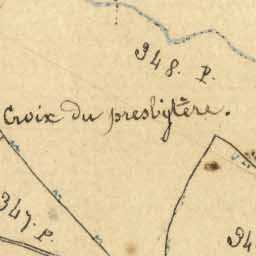 948. P.
Croix du presbytère.
947. P.
94